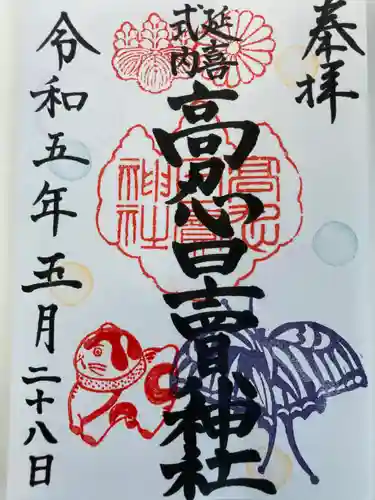 奉拝
延喜
式内
高忍日賣神社
高忍
日賣
神社
令和五年五月二十八日